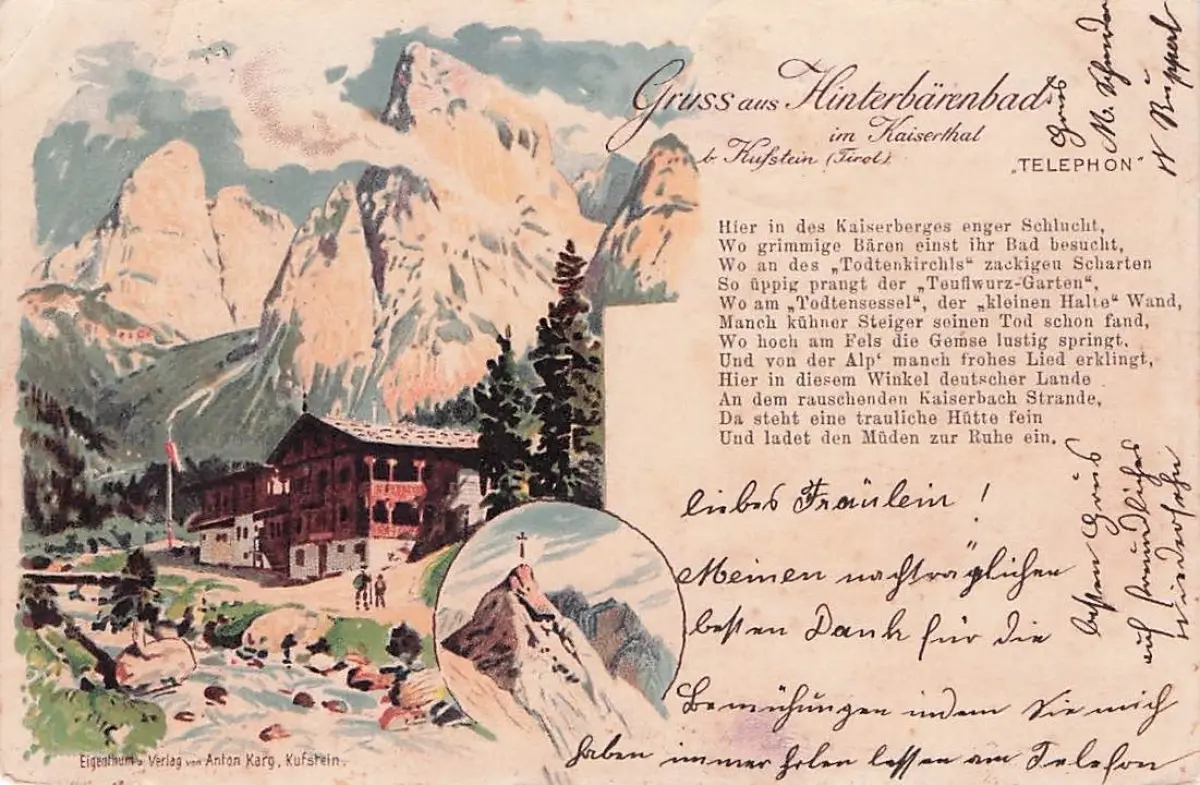 Gruss aus Hinterbärenbad
im Kaiserthal
b. Kufstein (Tirol).
„TELEPHON“
Hier in des Kaiserberges enger Schlucht,
Wo grimmige Bären einst ihr Bad besucht,
Wo an des „Todtenkirchls“ zackigen Scharten
So üppig prangt der „Teuflwurz-Garten“,
Wo am „Todtensessel“, der „kleinen Halte“ Wand,
Manch kühner Steiger seinen Tod schon fand,
Wo hoch am Fels die Gemse lustig springt,
Und von der Alp‘ manch frohes Lied erklingt,
Hier in diesem Winkel deutscher Lande
An dem rauschenden Kaiserbach Strande,
Da steht eine trauliche Hütte fein
Und ladet den Müden zur Ruhe ein.
liebes Fräulein !
Meinen nachträglichen
besten Dank für die
Bemühungen indem Sie mich
haben immer holen lassen am Telefon
besten Grus
auf freundliches
Wiedersehn
Grus
M.
N Ruppert
Eigenthum u. Verlag von Anton Karg, Kufstein.